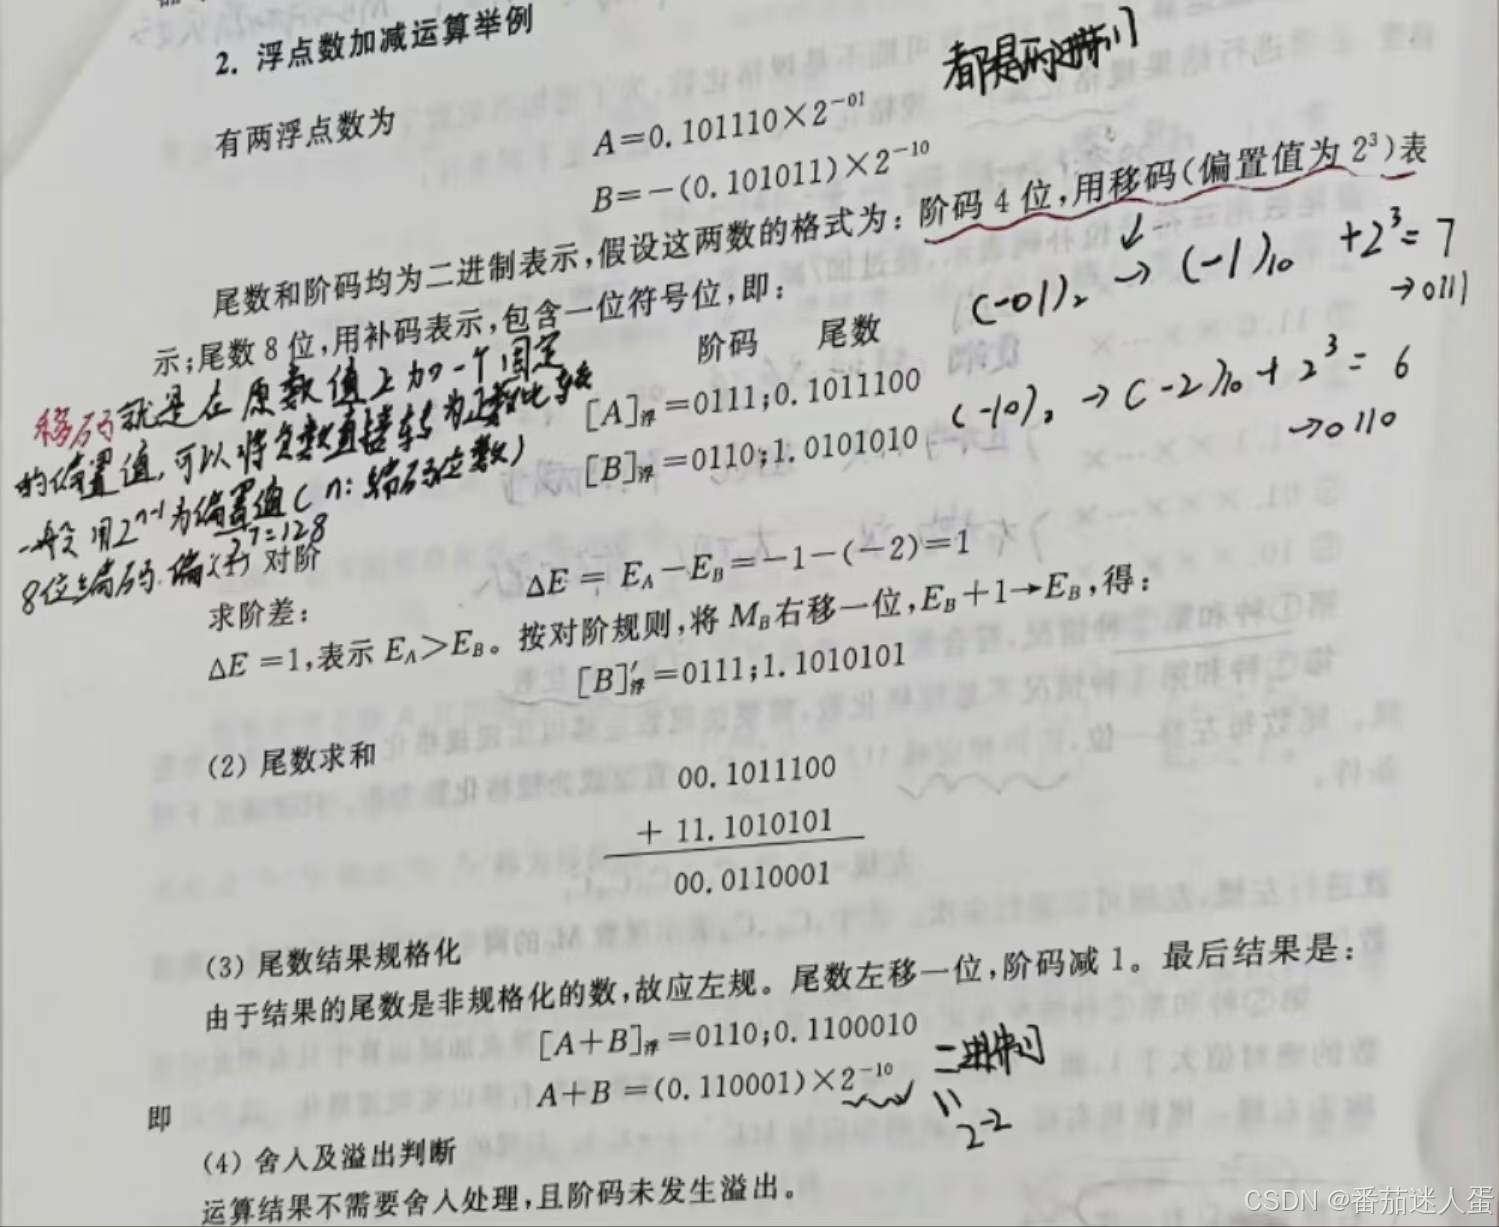 2. 浮点数加减运算举例
都是二进制
有两浮点数为
A=0.101110×2⁻⁰¹
B=-(0.101011)×2⁻¹⁰
尾数和阶码均为二进制表示,假设这两数的格式为:阶码 4 位,用移码(偏置值为 2³)表
示;尾数 8 位,用补码表示,包含一位符号位,即:
(-01)₂ → (-1)₁₀ +2³=7
→0111
阶码 尾数
[A]浮=0111;0.1011100
[B]浮=0110;1.0101010
(-10)₂ → (-2)₁₀ + 2³ = 6
→0110
移码就是在原数值上加一个固定
的偏置值,可以将负数直接转为正数比较
一般用2ⁿ⁻¹为偏置值(n:编码位数)
8位编码.偏 2⁷=128
对阶
求阶差:
ΔE = E_A-E_B=-1-(-2)=1
ΔE =1,表示 E_A>E_B。按对阶规则,将 M_B右移一位,E_B+1→E_B,得:
[B]′浮=0111;1.1010101
(2) 尾数求和
00.1011100
+ 11.1010101
00.0110001
(3) 尾数结果规格化
由于结果的尾数是非规格化的数,故应左规。尾数左移一位,阶码减 1。最后结果是:
[A+B]浮=0110;0.1100010
即
A+B =(0.110001)×2⁻¹⁰
二进制
11
2⁻²
(4) 舍入及溢出判断
运算结果不需要舍入处理,且阶码未发生溢出。
CSDN @番茄迷人蛋